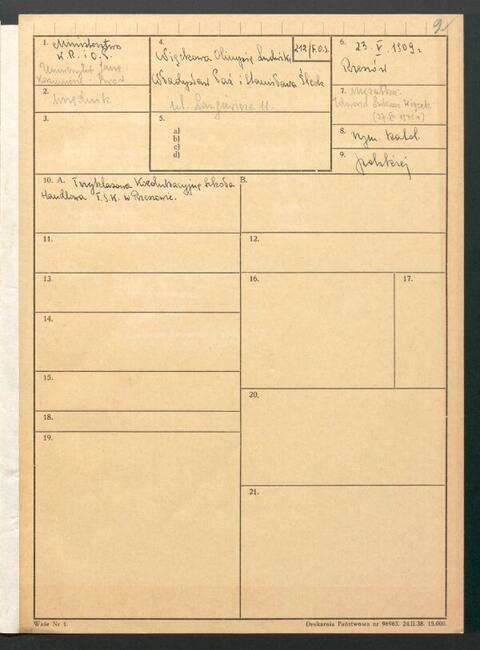 9
1. Ministerstwo
W. R. i O. P.
Uniwersytet Jana
Kazimierza - Lwów
2.
urzędnik
3.
4.
Więckowa Olimpia Ludwika
212/F.O.S.
Władysław Paś i Stanisława
ul. Langiewicza 11.
5.
a)
b)
c)
d)
6. 23. V. 1909 r.
Rzeszów
7. Mężatka
Edward
8. rzym. katol.
9. polskiej
10. A. Trzyklasowa Koedukacyjna Szkoła
Handlowa T.S.H. w Rzeszowie.
B.
11.
12.
13.
14.
15.
16.
17.
18.
19.
20.
21.
Wzór Nr 1.
Drukarnia Państwowa nr 96963. 24.II.38. 15.000.